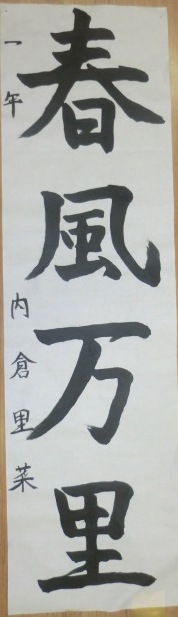 春風万里
一年 内倉里菜